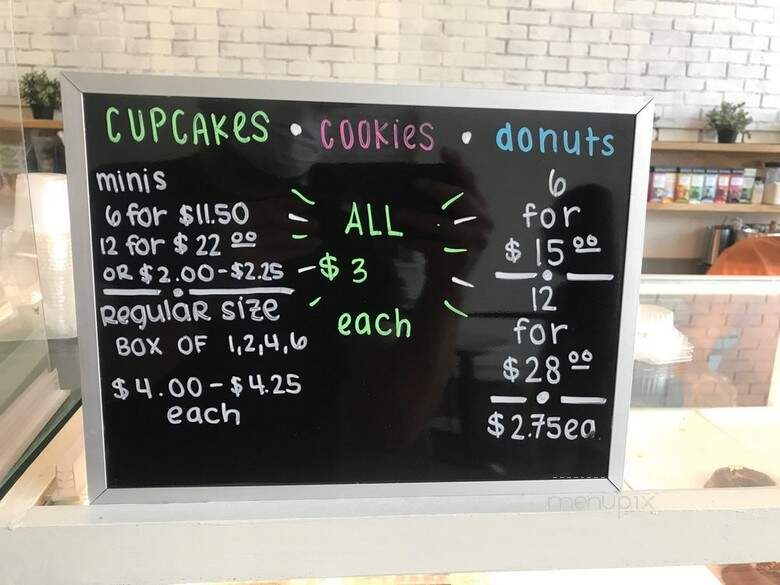 CUPCAKES • COOKIES • donuts
minis
6 for $11.50
12 for $22.00
OR $2.00-$2.25
Regular size
BOX OF 1,2,4,6
$4.00-$4.25
each
ALL
$3
each
6
for
$15.00
12
for
$28.00
$2.75ea
menupix